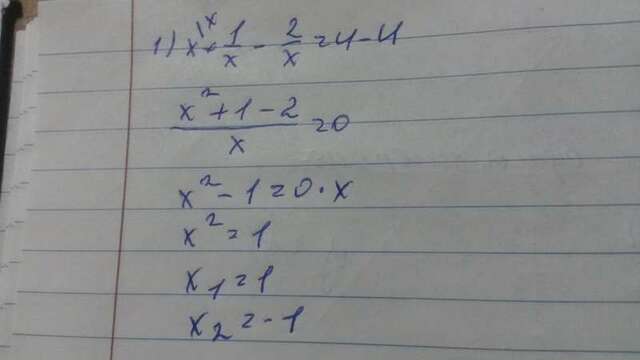 1) x\x + 1/x - 2/x = 4 - 4
x² + 1 - 2 / x = 0
x² - 1 = 0 · x
x² = 1
x₁ = 1
x₂ = -1